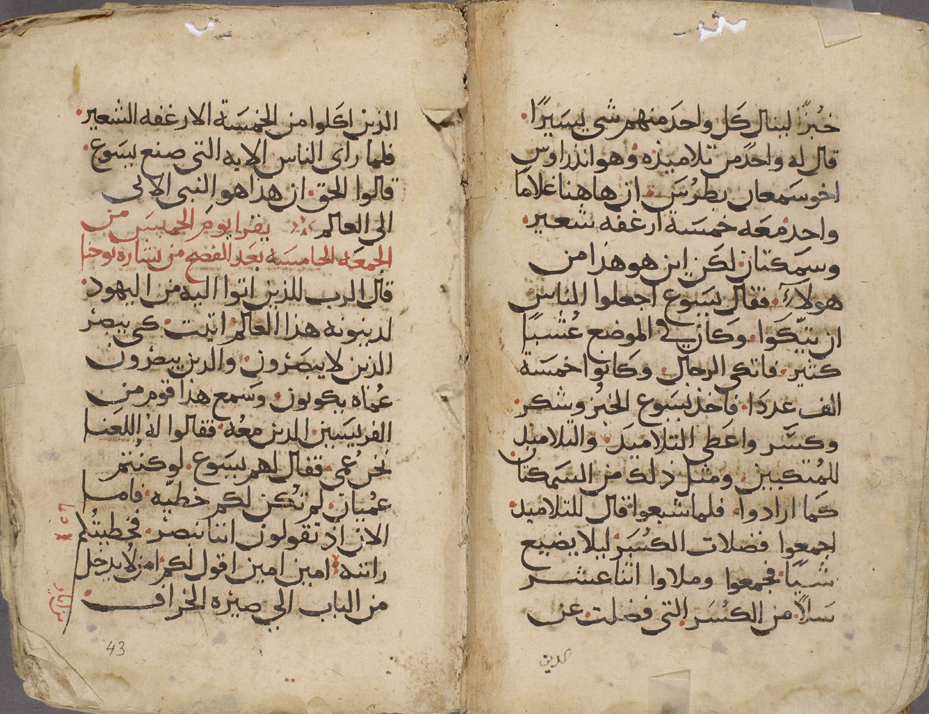 خُبزًا لينال كل واحد منهم شي يسيرًا.
قال له واحدٌ من تلاميذه وهو اندراوس
اخو سمعان بطرس. ان هاهنا غلامًا
واحد معه خمسة ارغفه شعير.
وسمكتان لكن اين هو هذا من
هولاء. فقال يسوع اجعلوا الناس
ان يتّكوا. وكان في الموضع عُشبًا
كثير. فاتكى الرجال وكانوا خمسة
الف عددًا. فاخذ يسوع الخبز وشكر.
وكسّر واعطى التلاميذ. والتلاميذ
للمُتكيين. ومثل ذلك من السمكتان
كما ارادوا. فلما شبعوا قال للتلاميذ.
اجمعوا فضلات الكُسَر ليلا يضيع
شيًا. فجمعوا وملاوا اثنا عشر
سلًا من الكُسَر التى فضلت عن
الذين اكلوا من الخمسة الارغفه الشعير.
فلما راى الناس الايه التى صنع يسوع.
قالوا الحق. ان هذا هو النبى الاتى
الى العالم يقرا يوم الخميس من
الجمعه الخامسه بعد الفصح من بشاره يوحنا
قال الرب للذين اتوا اليه من اليهود.
لدينونه هذا العالم اتيت. كى يبصر
الذين لا يبصرون. والدين يبصرون
عُماه يكونون. وسمع هذا قوم من
الفريسين الدين معه. فقالوا له العلنا
نحن عُمى. فقال لهم يسوع. لو كنتم
عُميان لم تكن لكم خطيه. فاما
الان اد تقولون اننا نبصر. فخطيتُكم
ثابته امين امين اقول لكم. ان من لا يدخل
من الباب الى صيره الخراف.
43